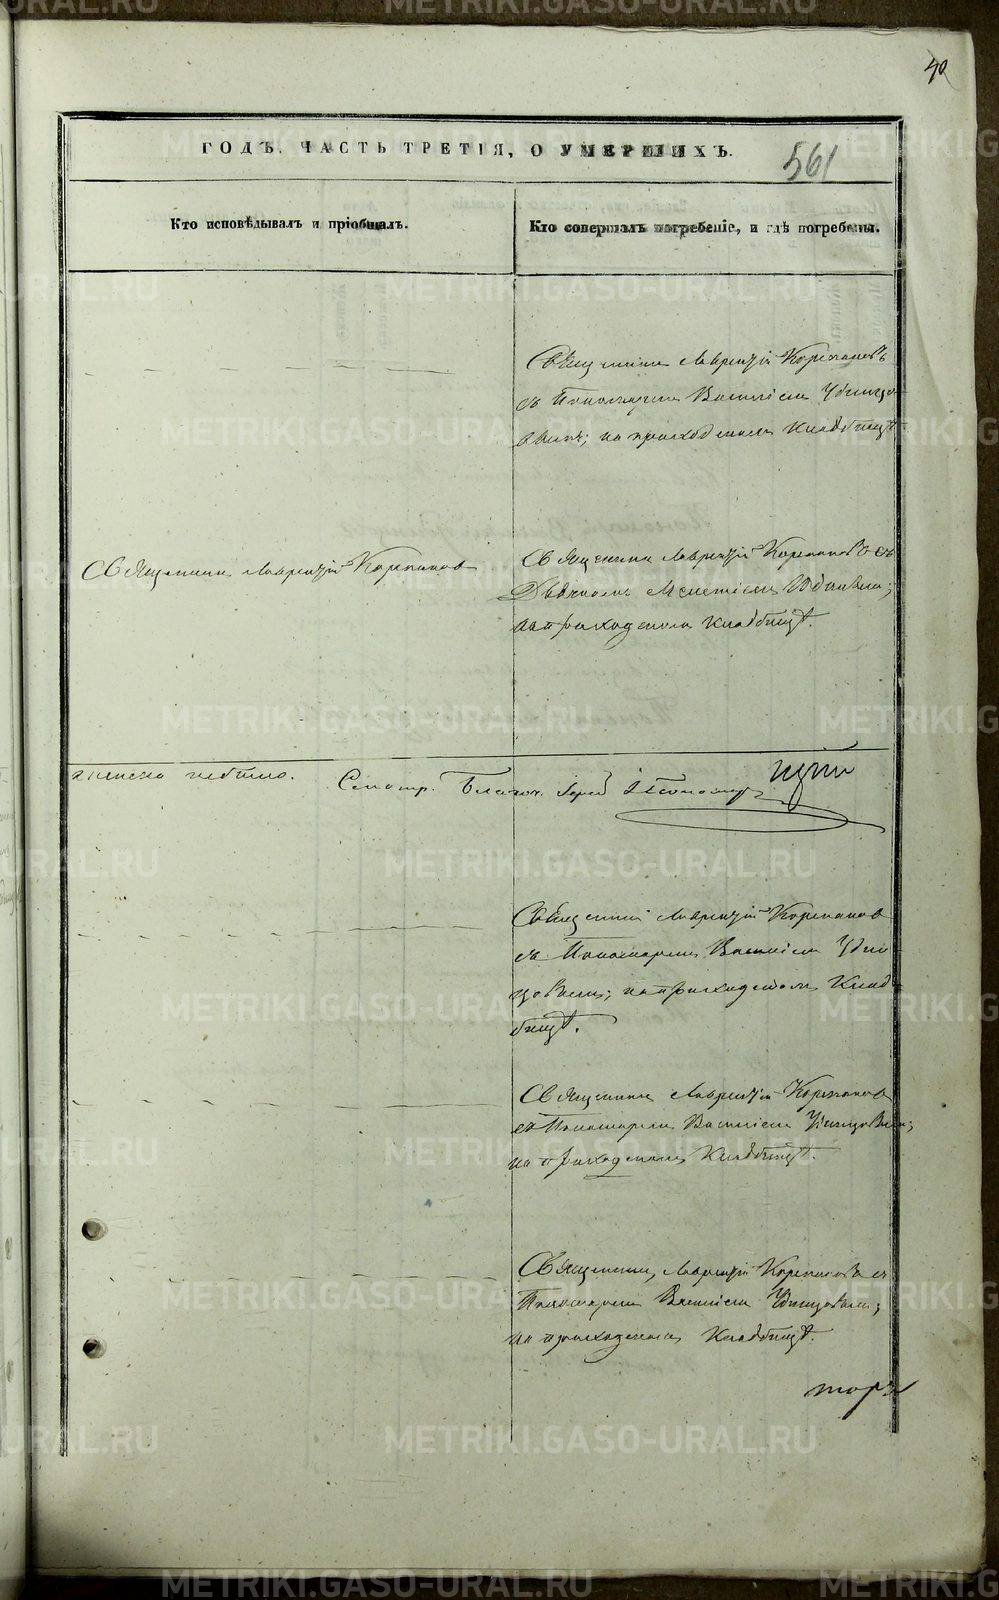 40
ГОДЪ. ЧАСТЬ ТРЕТІЯ, О УМЕРШИХЪ.
561
Кто исповѣдывалъ и пріобщалъ.
Кто совершалъ погребеніе, и гдѣ погребены.
Священникъ Лаврентій Корепановъ
съ Пономаремъ Василіемъ Удинцо-
вымъ; на приходскомъ Кладбищѣ
Священникъ Лаврентій Корепановъ
Священникъ Лаврентій Корепановъ съ
Дьячкомъ
на приходскомъ Кладбищѣ.
небыло. Смотр. Благоч. Іерей
Священникъ Лаврентій Корепановъ
съ Пономаремъ Василіемъ Удин-
цовымъ; на приходскомъ Клад-
бищѣ.
Священникъ Лаврентій Корепановъ
съ Пономаремъ Василіемъ Удинцовымъ;
на приходскомъ Кладбищѣ.
Священникъ Лаврентій Корепановъ съ
Пономаремъ Василіемъ Удинцовымъ;
на приходскомъ Кладбищѣ.
METRIKI.GASO-URAL.RU